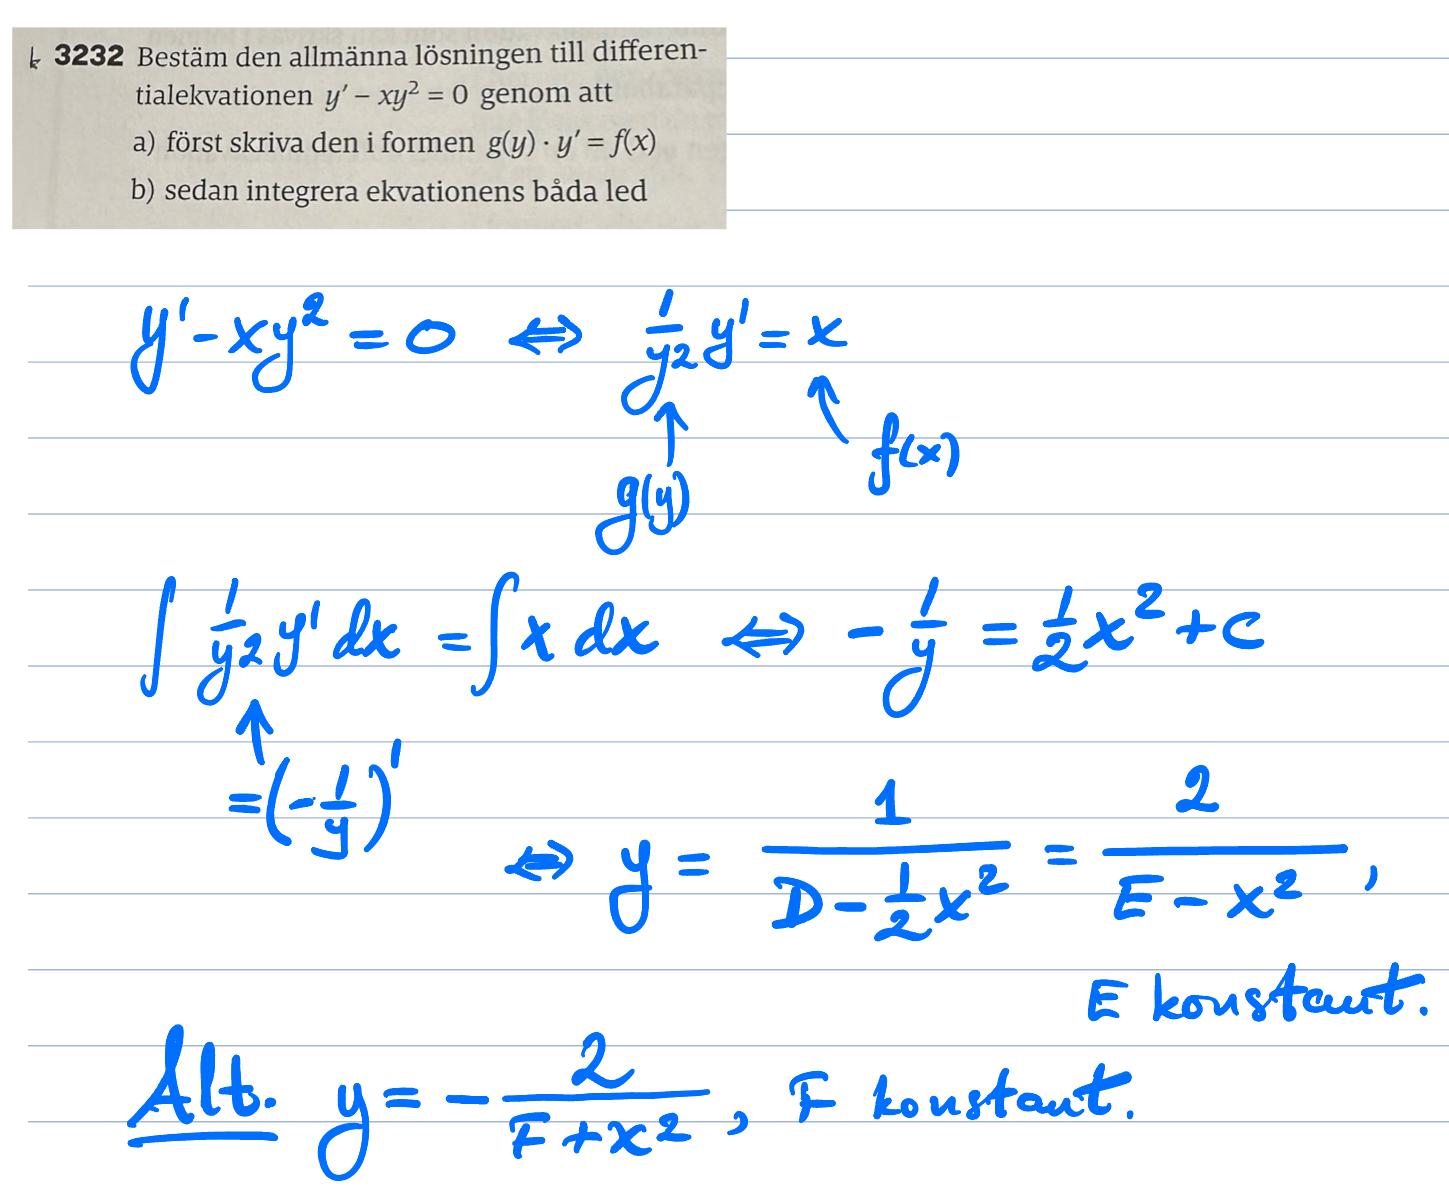 k 3232 Bestäm den allmänna lösningen till differen-
tialekvationen y' – xy² = 0 genom att
a) först skriva den i formen g(y) · y' = f(x)
b) sedan integrera ekvationens båda led
y' - xy² = 0 ⇔ 1/y² y' = x
↑ ↑
g(y) f(x)
∫ 1/y² y' dx = ∫ x dx ⇔ - 1/y = 1/2 x² + C
↑
= (- 1/y)'
⇔ y = 1/(D - 1/2 x²) = 2/(E - x²) ,
E konstant.
Alt. y = - 2/(F + x²) , F konstant.